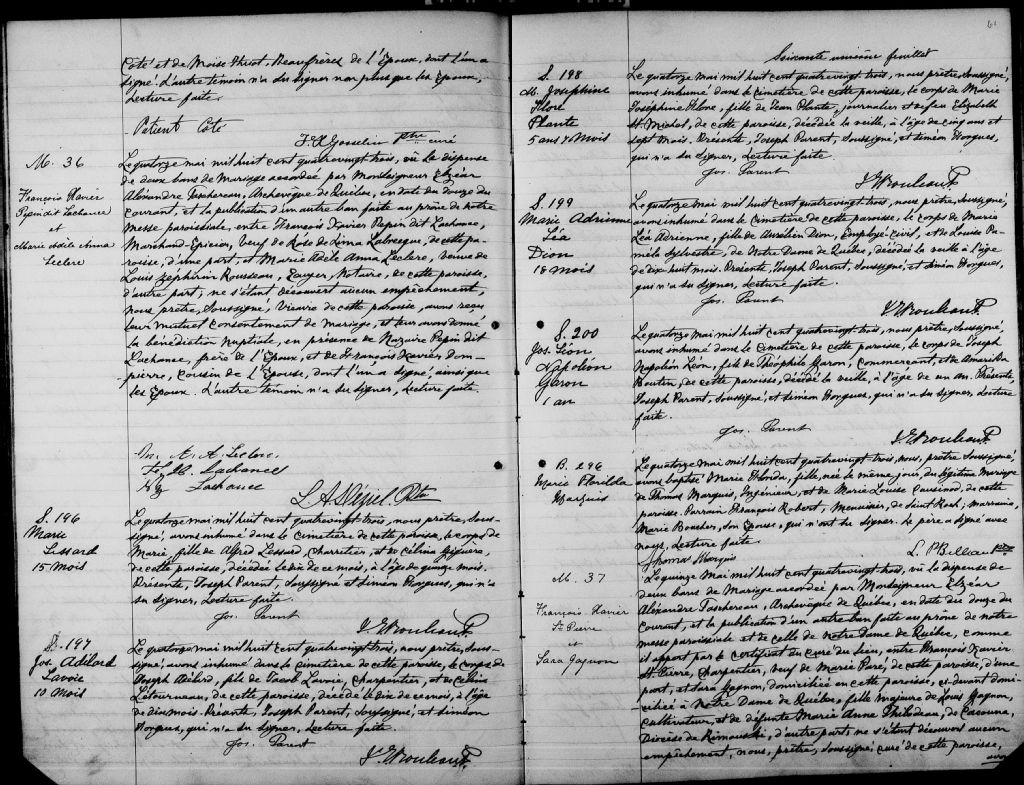 Coté et de Moïse Huot, Beaufrères de l'Epoux, dont l'un a
signé. L'autre témoin n'a su signer non plus que les Epoux,
Lecture faite.
Patient Coté
F. X. Gosselin Ptre curé
M. 36
François Xavier
Pepin dit Lachance
et
Marie Adèle Anna
Leclerc
Le quatorze mai mil huit cent quatrevingt trois, vû la dispense
de deux bans de Mariage accordée par Monseigneur Elzéar
Alexandre Taschereau, Archevêque de Québec, en date du douze du
courant, et la publication d'un autre ban faite au prône de notre
messe paroissiale, entre François Xavier Pepin dit Lachance,
Marchand-Epicier, Veuf de Rose de Lima Labrecque, de cette pa-
roisse, d'une part, et Marie Adèle Anna Leclerc, veuve de
Louis Zéphirin Rousseau, Ecuyer, Notaire, de cette paroisse,
d'autre part; ne s'étant découvert aucun empêchement,
nous prêtre, Soussigné, Vicaire de cette paroisse, avons reçu
leur mutuel consentement de Mariage, et leur avons donné
la bénédiction Nuptiale, en présence de Nazaire Pepin dit
Lachance, frère de l'Epoux, et de François Xavier Dom-
pierre, cousin de l'Epouse, dont l'un a signé, ainsi que
les Epoux. L'autre témoin n'a su signer, Lecture faite.
M. A. A. Leclerc
F. X. Lachance
Nz Lachance
S. 196
Marie
Lessard
15 Mois
Le quatorze mai mil huit cent quatrevingt trois, nous prêtre, Sous-
signé, avons inhumé dans le cimetière de cette paroisse, le corps de
Marie, fille de Alfred Lessard, Charretier, et de Célina Giguère,
de cette paroisse, décédée le dix de ce mois, à l'âge de quinze mois.
Présents, Joseph Parent, Soussigné et Siméon Hongues, qui n'a
su signer, Lecture faite.
Jos. Parent
J. E. Rouleau P.
S. 197
Jos. Adélard
Lavoie
10 Mois
Le quatorze mai mil huit cent quatrevingt trois, nous prêtre, Sous-
signé, avons inhumé dans le cimetière de cette paroisse, le corps de
Joseph Adélard, fils de Jacob Lavoie, Charpentier, et de Célina
Létourneau, de cette paroisse, décédé le dix de ce mois, à l'âge
de dix mois. Présents, Joseph Parent, Soussigné, et Siméon
Hongues, qui n'a su signer, Lecture faite.
Jos. Parent
J. E. Rouleau P.
61
Soixante unième feuillet
S. 198
M. Joséphine
Flore
Plante
5 ans 7 Mois
Le quatorze mai mil huit cent quatrevingt trois, nous prêtre, Soussigné,
avons inhumé dans le cimetière de cette paroisse, le corps de Marie
Joséphine Flore, fille de Jean Plante, journalier et de feu Elizabeth
St. Michel, de cette paroisse, décédée la veille, à l'âge de cinq ans et
sept mois. Présents, Joseph Parent, Soussigné, et Siméon Hongues,
qui n'a su signer, Lecture faite.
Jos. Parent
J. E. Rouleau P.
S. 199
Marie Adrienne
Léa
Dion
18 Mois
Le quatorze mai mil huit cent quatrevingt trois, nous prêtre, Soussigné,
avons inhumé dans le cimetière de cette paroisse, le corps de Marie
Léa Adrienne, fille de Aurélien Dion, Employé-Civil, et de Louise Pa-
méla Sylvestre, de Notre Dame de Québec, décédée la veille à l'âge
de dix huit mois. Présents, Joseph Parent, Soussigné, et Siméon Hongues,
qui n'a su signer, Lecture faite.
Jos. Parent
J. E. Rouleau P.
S. 200
Jos. Léon
Napoléon
Garon
1 an
Le quatorze mai mil huit cent quatrevingt trois, nous prêtre, Soussigné,
avons inhumé dans le cimetière de cette paroisse, le corps de Joseph
Napoléon Léon, fils de Théophile Garon, Commerçant, et de Amarilda
Boutin, de cette paroisse, décédé la veille, à l'âge de un an. Présents,
Joseph Parent, Soussigné, et Siméon Hongues, qui n'a su signer, Lecture
faite.
Jos. Parent
J. E. Rouleau P.
B. 296
Marie Florilda
Marquis
Le quatorze mai mil huit cent quatrevingt trois, nous, prêtre Soussigné,
avons baptisé Marie Florida, fille, née le même jour, du légitime Mariage
de Thomas Marquis, Ingénieur, et de Marie Louise Cousined, de cette
paroisse. Parrain François Robert, Menuisier, de Saint Roch; marraine,
Marie Boucher, Son Epouse, qui n'ont su signer. Le père a signé avec
nous, Lecture faite.
Thomas Marquis
M. 37
François Xavier
St Pierre
et
Sara Gagnon
Le quinze Mai mil huit cent quatrevingt trois, vû la dispense de
deux bans de Mariage accordée par Monseigneur Elzéar
Alexandre Taschereau, Archevêque de Québec, en date du douze du
Courant, et la publication d'un autre ban faite au prône de notre
messe paroissiale et de celle de Notre Dame de Québec, comme
il appert par le certificat du curé du lieu, entre François Xavier
St. Pierre, Charpentier, Veuf de Marie Paré, de cette paroisse, d'une
part, et Sara Gagnon, domiciliée en cette paroisse, ci-devant domi-
ciliée à Notre Dame de Québec, fille majeure de Louis Gagnon,
Cultivateur, et de défunte Marie Anne Thibodeau, de Cacouna,
Diocèse de Rimouski, d'autre part; ne s'étant découvert aucun
empêchement, nous, prêtre, Soussigné, curé de cette paroisse,
avons